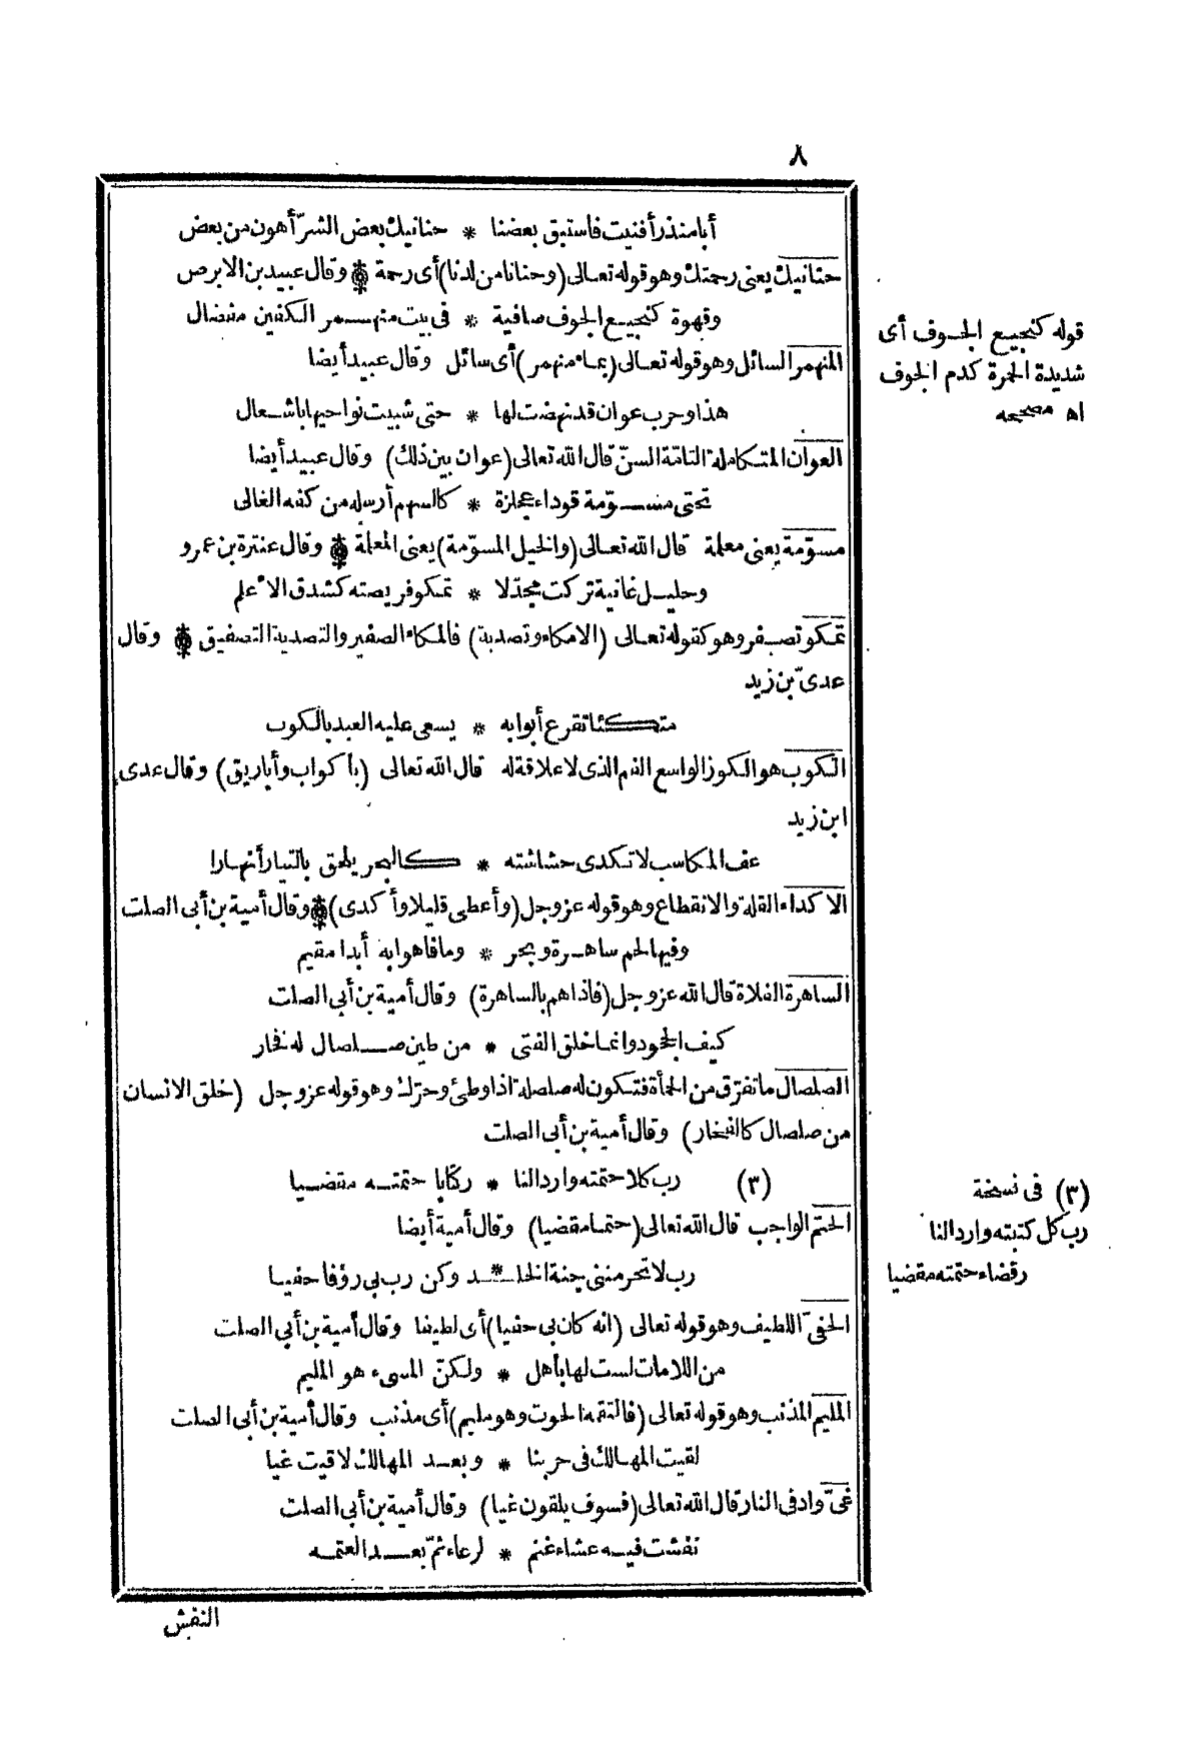 ٨
أبا منذر أفنيت فاستبق بعضنا * حنانيك بعض الشرّ أهون من بعض
حنانيك يعنى رحمتك وهو قوله تعالى (وحنانا من لدنا) أى رحمة * وقال عبيد بن الابرص
وقهوة كنجيع الجوف صافية * فى بيت منهمر الكفين مفضال
المنهمر السائل وهو قوله تعالى (بماء منهمر) أى سائل وقال عبيد أيضا
هذا وحرب عوان قد نهضت لها * حتى شببت نواحيها باشعال
العوان المتكاملة التامّة السنّ قال الله تعالى (عوان بين ذلك) وقال عبيد أيضا
تحتى مسوّمة قوداء عجلزة * كالسهم أرسله من كفه الغالى
مسوّمة يعنى معلمة قال الله تعالى (والخيل المسوّمة) يعنى المعلمة * وقال عنترة بن عمرو
وحليل غانية تركت مجدّلا * تمكو فريصته كشدق الأعلم
تمكو تصفر وهو كقوله تعالى (الامكاء وتصدية) فالمكاء الصفير والتصدية التصفيق * وقال
عدىّ بن زيد
متكئا تقرع أبوابه * يسعى عليه العبد بالكوب
الكوب هو الكوز الواسع الفم الذى لا علاقة له قال الله تعالى (بأكواب وأباريق) وقال عدى
ابن زيد
عف المكاسب لا تكدى حشاشته * كالبحر يلحق بالتيار أنهارا
الاكداء القلة والانقطاع وهو قوله عز وجل (وأعطى قليلا وأكدى) * وقال أمية بن أبى الصلت
وفيها لحم ساهرة وبحر * وما فاهوا به أبدا مقيم
الساهرة الفلاة قال الله عز وجل (فاذا هم بالساهرة) وقال أمية بن أبى الصلت
كيف الجحود وانما خلق الفتى * من طين صلصال له فخار
الصلصال ما تفرّق من الحمأة فتكون له صلصلة اذا وطئ وحرّك وهو قوله عز وجل (خلق الانسان
من صلصال كالفخار) وقال أمية بن أبى الصلت
(٣) رب كلا حتمته وارد النا * ر كتابا حتمته مقضيا
الحتم الواجب قال الله تعالى (حتما مقضيا) وقال أمية أيضا
رب لا تحرمننى جنة الخلد * وكن رب بى رؤفا حفيا
الحفىّ اللطيف وهو قوله تعالى (انه كان بى حفيا) أى لطيفا وقال أمية بن أبى الصلت
من اللامات لست لها بأهل * ولكنّ المسىء هو المليم
المليم المذنب وهو قوله تعالى (فالتقمه الحوت وهو مليم) أى مذنب وقال أمية بن أبى الصلت
لقيت المهالك فى حربنا * وبعد المهالك لاقيت غيا
غىّ واد فى النار قال الله تعالى (فسوف يلقون غيا) وقال أمية بن أبى الصلت
نفشت فيه عشاء غنم * لرعاء ثمّ بعد العتمه
النفش
قوله كنجيع الجوف أى
شديدة الحمرة كدم الجوف
اه مصححه
(٣) فى نسخة
رب كل كتبته وارد النا
ر قضاء حتمته مقضيا